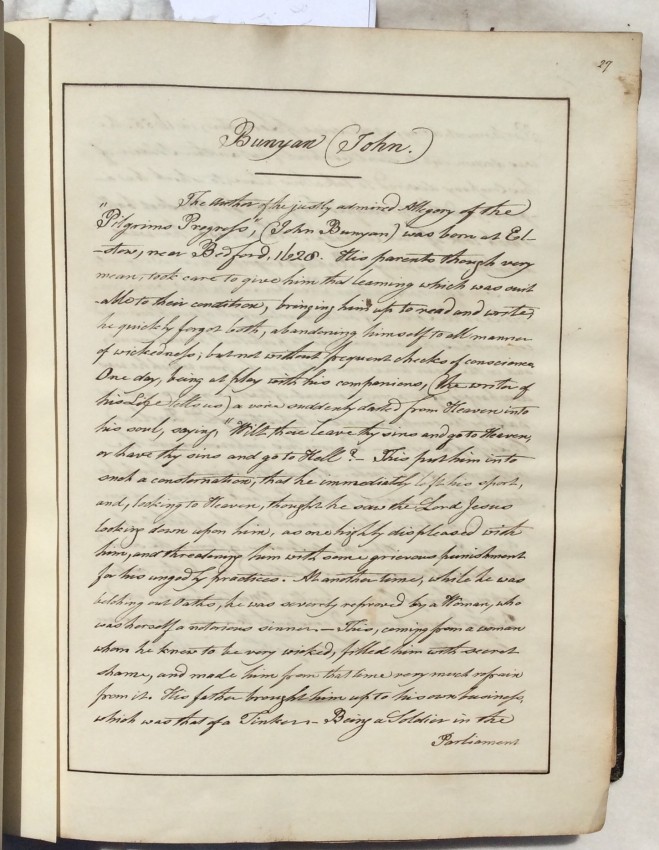 27
Bunyan (John.)
The Author of the justly admired Allegory of the
"Pilgrims Progress", (John Bunyan) was born at El-
-stow, near Bedford, 1628. His parents though very
mean, took care to give him that learning which was suit
-able to their condition, bringing him up to read and write,
he quickly forgot both, abandoning himself to all manner
of wickedness; but not without frequent checks of conscience.
One day, being at play with his companions, (the writer of
his Life tells us) a voice suddenly darted from Heaven into
his soul, saying, "Wilt thou leave thy sins and go to Heaven,
or have thy sins and go to Hell?- This put him into
such a consternation, that he immediately left his sport,
and, looking to Heaven, thought he saw the Lord Jesus
looking down upon him, as one highly displeased with
him, and threatening him with some grievous punishment
for his ungodly practices. At another time, while he was
belching out Oaths, he was severely reproved by a Woman, who
was herself a notorious sinner.- This, coming from a woman
whom he knew to be very wicked, filled him with secret
shame, and made him from that time very much refrain
from it. His father brought him up to his own business,
which was that of a Tinker.- Being a Soldier in the
Parliament